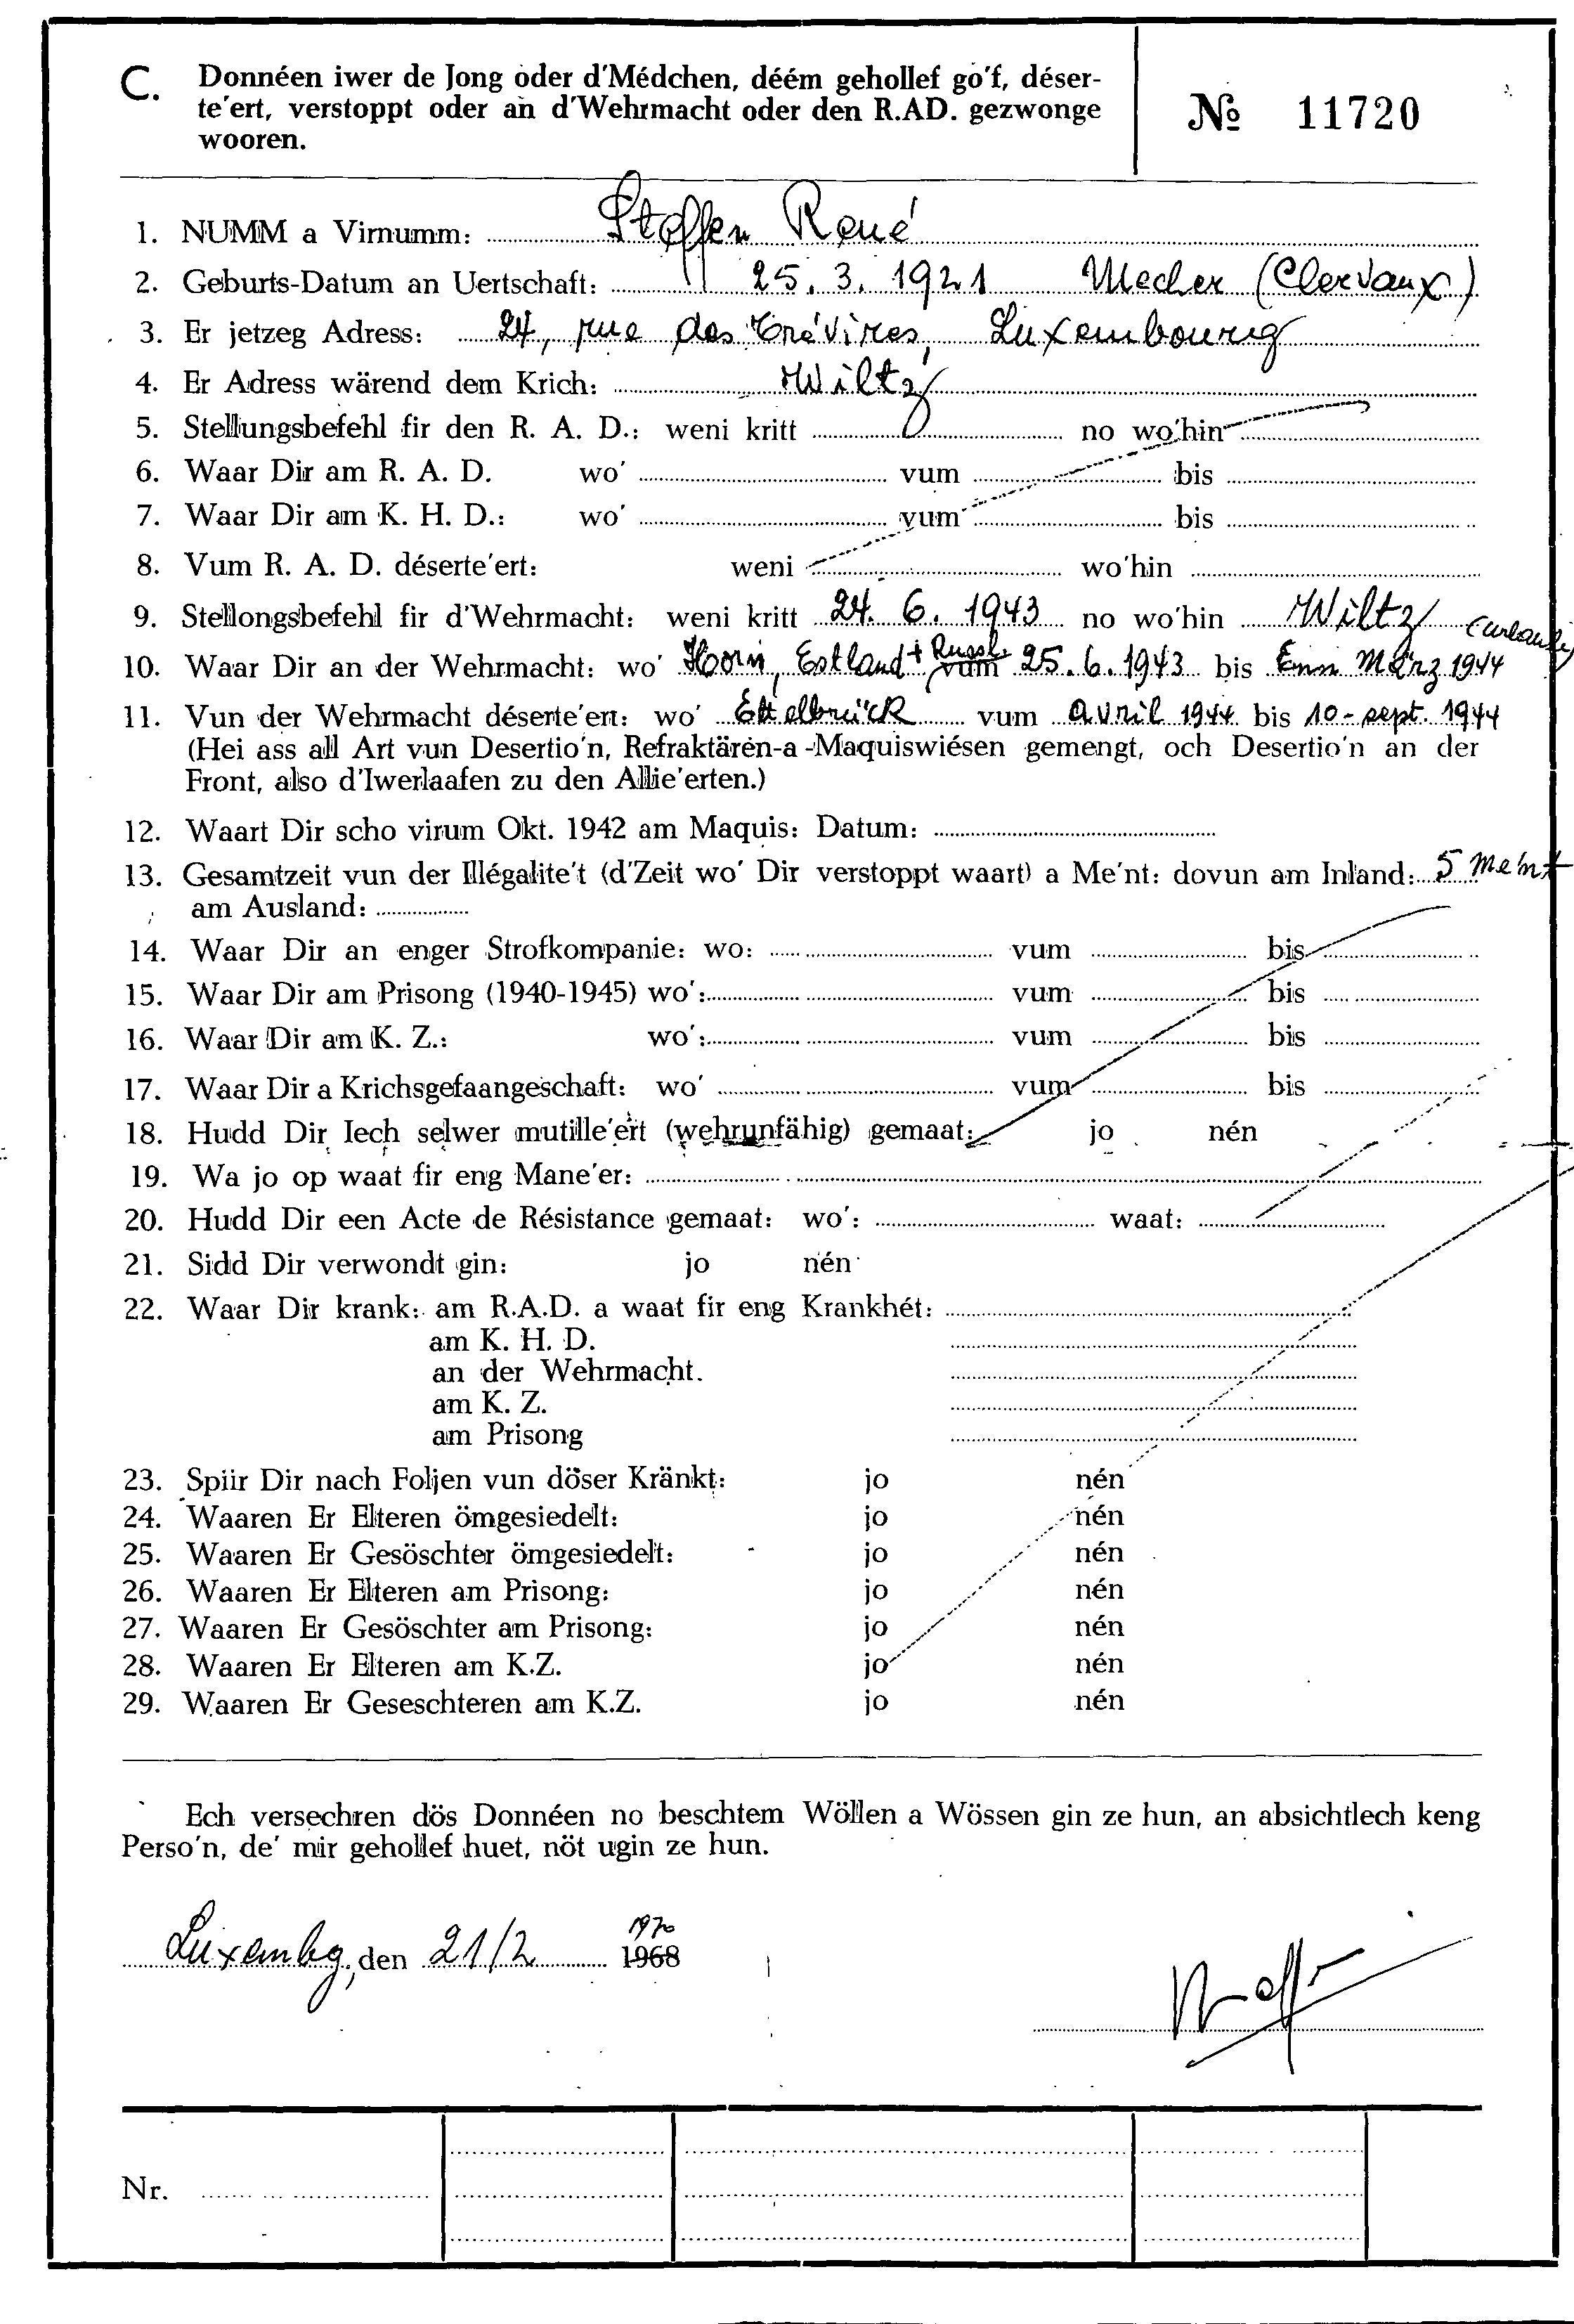 C. Donnéen iwer de Jong oder d'Médchen, déém gehollef go'f, déser-
te'ert, verstoppt oder an d'Wehrmacht oder den R.AD. gezwonge
wooren.
№ 11720
1. NUMM a Virnumm: Steffen René
2. Geburts-Datum an Uertschaft: 25. 3. 1921 Mecher (Clervaux)
3. Er jetzeg Adress: 24, rue des Trévires, Luxembourg
4. Er Adress wärend dem Krich: Wiltz
5. Stellungsbefehl fir den R. A. D.: weni kritt no wo'hin
6. Waar Dir am R. A. D. wo' vum bis
7. Waar Dir am K. H. D.: wo' vum bis
8. Vum R. A. D. déserte'ert: weni wo'hin
9. Stellongsbefehl fir d'Wehrmacht: weni kritt 24. 6. 1943 no wo'hin Wiltz
10. Waar Dir an der Wehrmacht: wo' Horn, Estland + Russl. vum 25. 6. 1943 bis Enn März 1944 (urlaub)
11. Vun der Wehrmacht déserte'ert: wo' Ettelbrück vum Avril 1944 bis 10-sept. 1944
(Hei ass all Art vun Desertio'n, Refraktären-a-Maquiswiésen gemengt, och Desertio'n an der
Front, also d'Iwerlaafen zu den Allie'erten.)
12. Waart Dir scho virum Okt. 1942 am Maquis: Datum:
13. Gesamtzeit vun der Illégalite't (d'Zeit wo' Dir verstoppt waart) a Me'nt: dovun am Inland: 5 Me'nt
am Ausland:
14. Waar Dir an enger Strofkompanie: wo: vum bis
15. Waar Dir am Prisong (1940-1945) wo': vum bis
16. Waar Dir am K. Z.: wo': vum bis
17. Waar Dir a Krichsgefaangeschaft: wo' vum bis
18. Hudd Dir Iech selwer mutille'ert (wehrunfähig) gemaat: jo nén
19. Wa jo op waat fir eng Mane'er:
20. Hudd Dir een Acte de Résistance gemaat: wo': waat:
21. Sidd Dir verwondt gin: jo nén
22. Waar Dir krank: am R.A.D. a waat fir eng Krankhét:
am K. H. D.
an der Wehrmacht.
am K. Z.
am Prisong
23. Spiir Dir nach Foljen vun döser Kränkt: jo nén
24. Waaren Er Elteren ömgesiedelt: jo nén
25. Waaren Er Gesöschter ömgesiedelt: jo nén
26. Waaren Er Elteren am Prisong: jo nén
27. Waaren Er Gesöschter am Prisong: jo nén
28. Waaren Er Elteren am K.Z. jo nén
29. Waaren Er Geseschteren am K.Z. jo nén
Ech versechren dös Donnéen no beschtem Wöllen a Wössen gin ze hun, an absichtlech keng
Perso'n, de' mir gehollef huet, nöt ugin ze hun.
1970
Luxembg, den 21/2 1968
Nr.